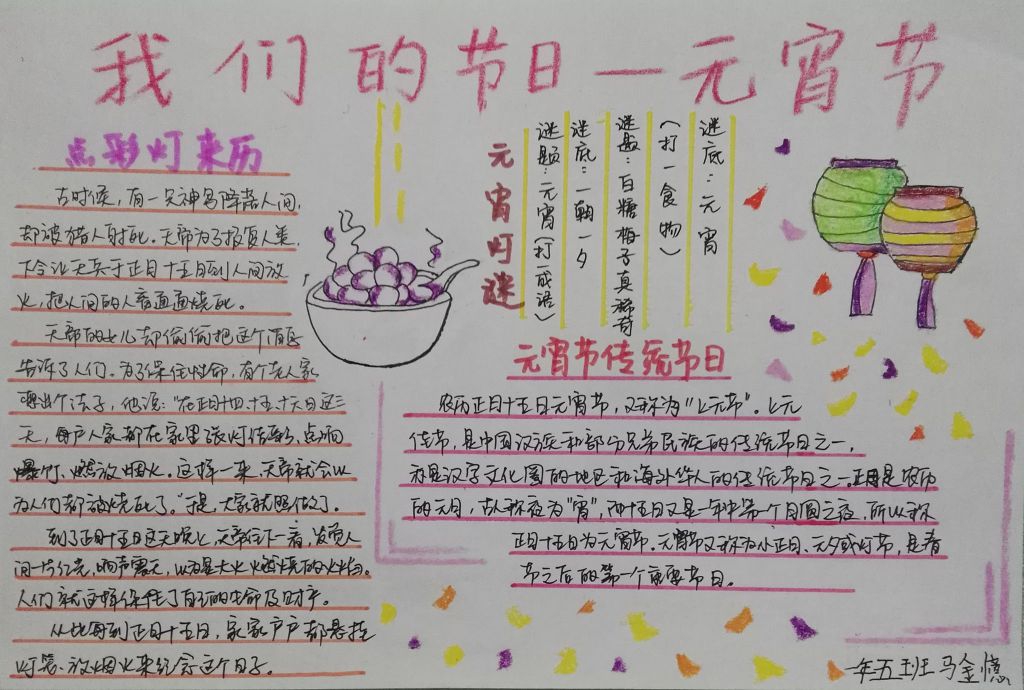 我们的节日—元宵节
点彩灯来历
古时候，有一只神鸟降落人间，
却被猎人射死。天帝为了报复人类，
下令让天兵于正月十五日到人间放
火，把人间的人畜通通烧死。
天帝的女儿却偷偷把这个消息
告诉了人们。为了保住性命，有个老人家
想出个法子，他说："在正月十四、十五、十六日这三
天，每户人家都在家里张灯结彩，点响
爆竹、燃放烟火。这样一来，天帝就会以
为人们都被烧死了。"于是，大家就照做了。
到了正月十五日这天晚上，天帝往下一看，发觉人
间一片红光，响声震天，以为是大火燃烧的火焰。
人们就这样保住了自己的生命及财产。
从此每到正月十五日，家家户户都悬挂
灯笼、放烟火来纪念这个日子。
元宵灯谜
谜题：元宵（打一成语）
谜底：一朝一夕
谜题：白糖梅子真稀奇
（打一食物）
谜底：元宵
元宵节传统节日
农历正月十五日元宵节，又称为"上元节"。上元
佳节，是中国汉族和部分兄弟民族的传统节日之一，
亦是汉字文化圈的地区和海外华人的传统节日之一。正月是农历
的元月，古人称夜为"宵"，而十五日又是一年中第一个月圆之夜，所以称
正月十五日为元宵节。元宵节又称为小正月、元夕或灯节，是春
节之后的第一个重要节日。
一年五班 马金